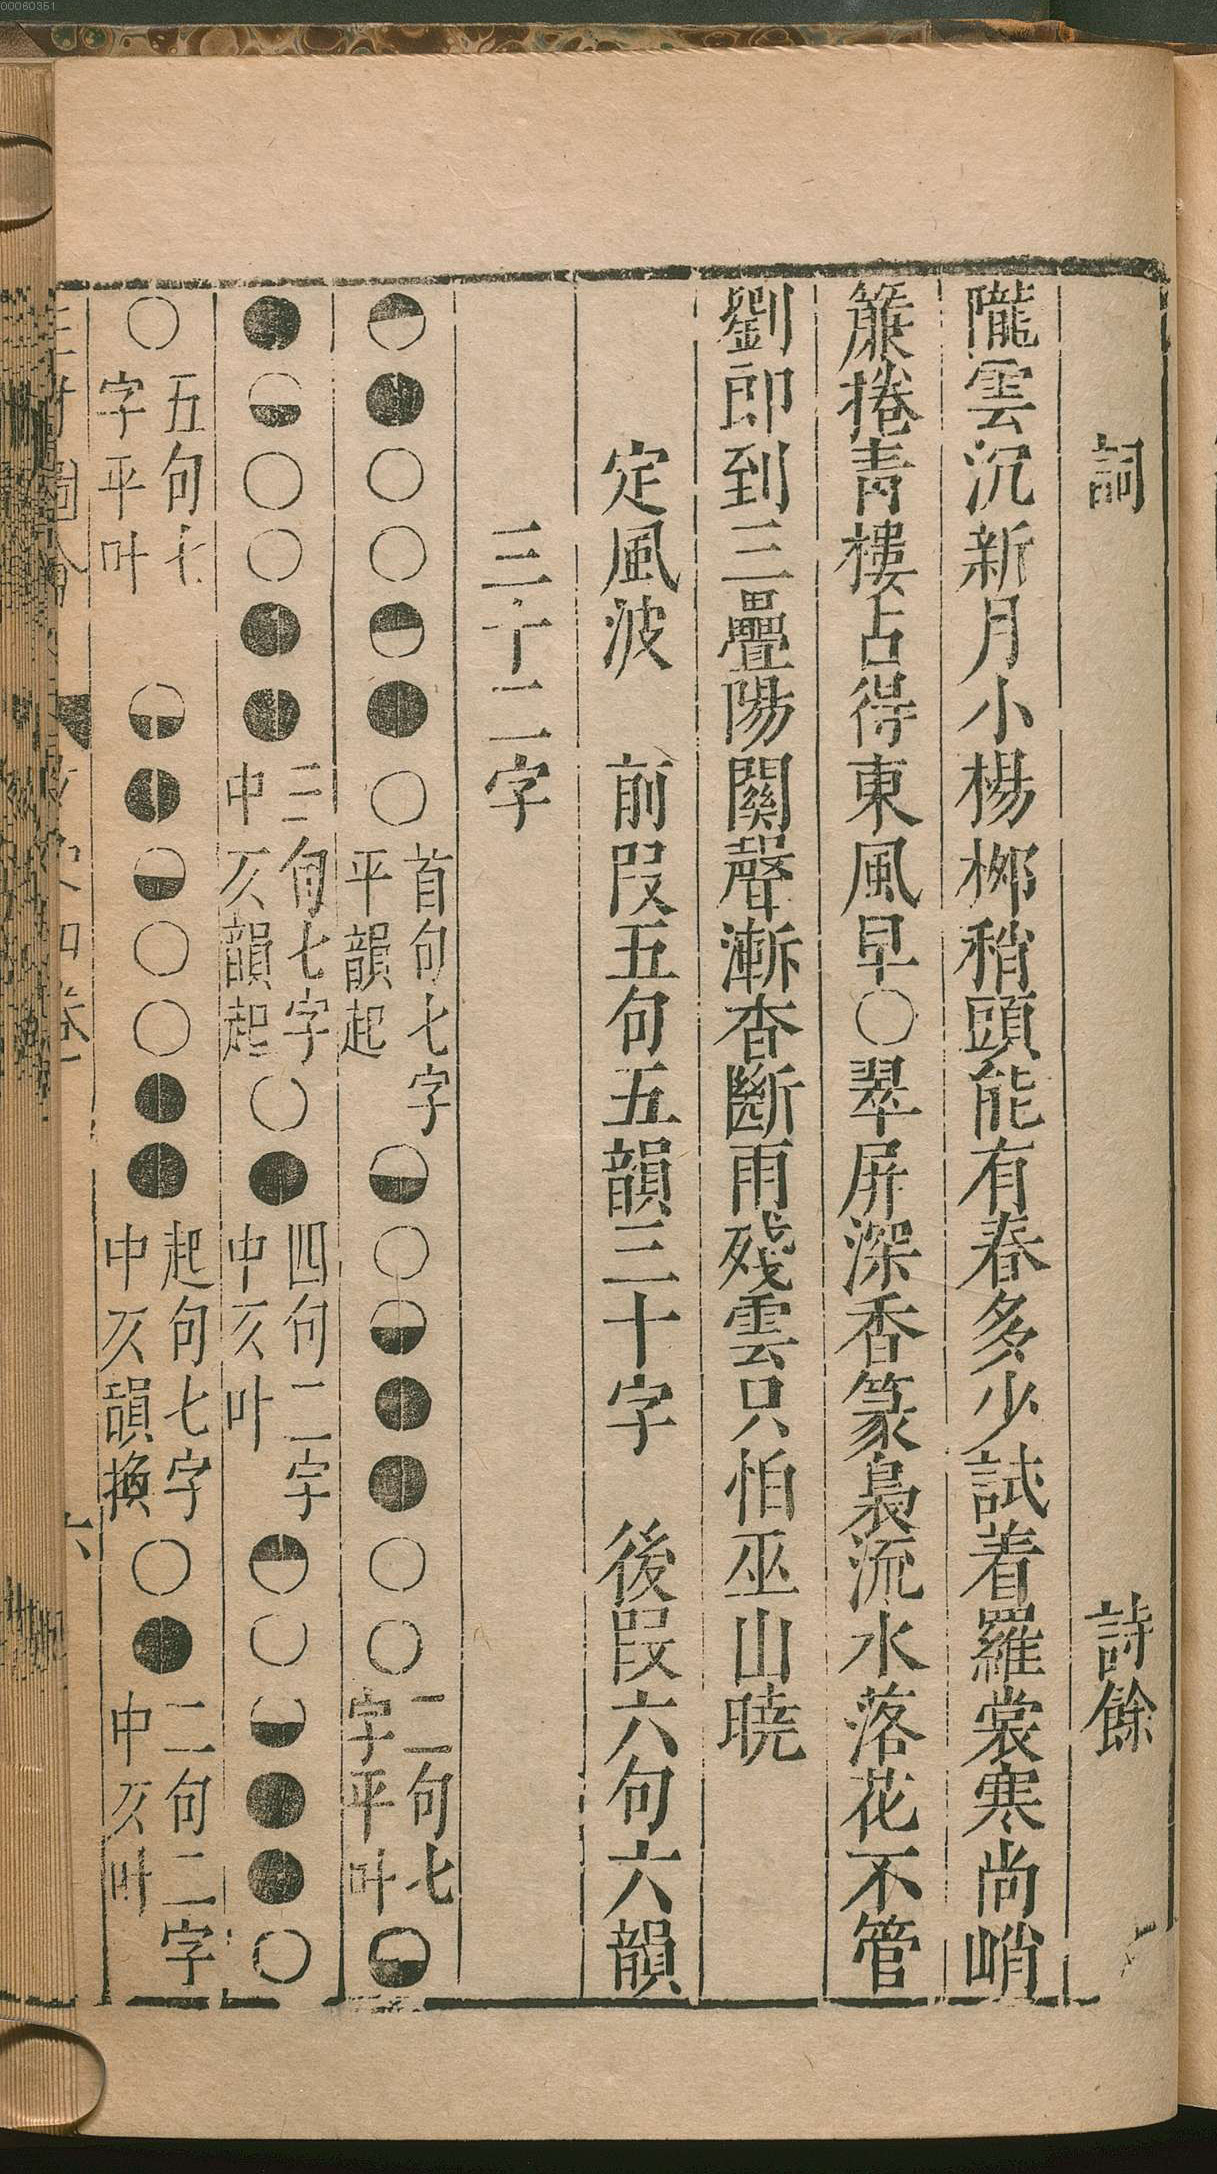 00060351
詞 詩餘
隴雲沉新月小楊桞稍頭能有春多少試着羅裳寒尚峭
簾捲靑樓占得東風早〇翠屏深香篆裊流水落花不管
劉郎到三疊陽關聲漸杳斷雨殘雲只怕巫山曉
定風波 前段五句五韻三十字 後段六句六韻
三十二字
◓●○○◓●○首句七字平韻起◒○◒●●○○二句七字平叶◒
●◒○○●●三句七字中仄韻起○●四句二字中仄叶◓○◒●●○
○五句七字平叶 ◒●◒○○●●起句七字中仄韻換○●二句二字中仄叶